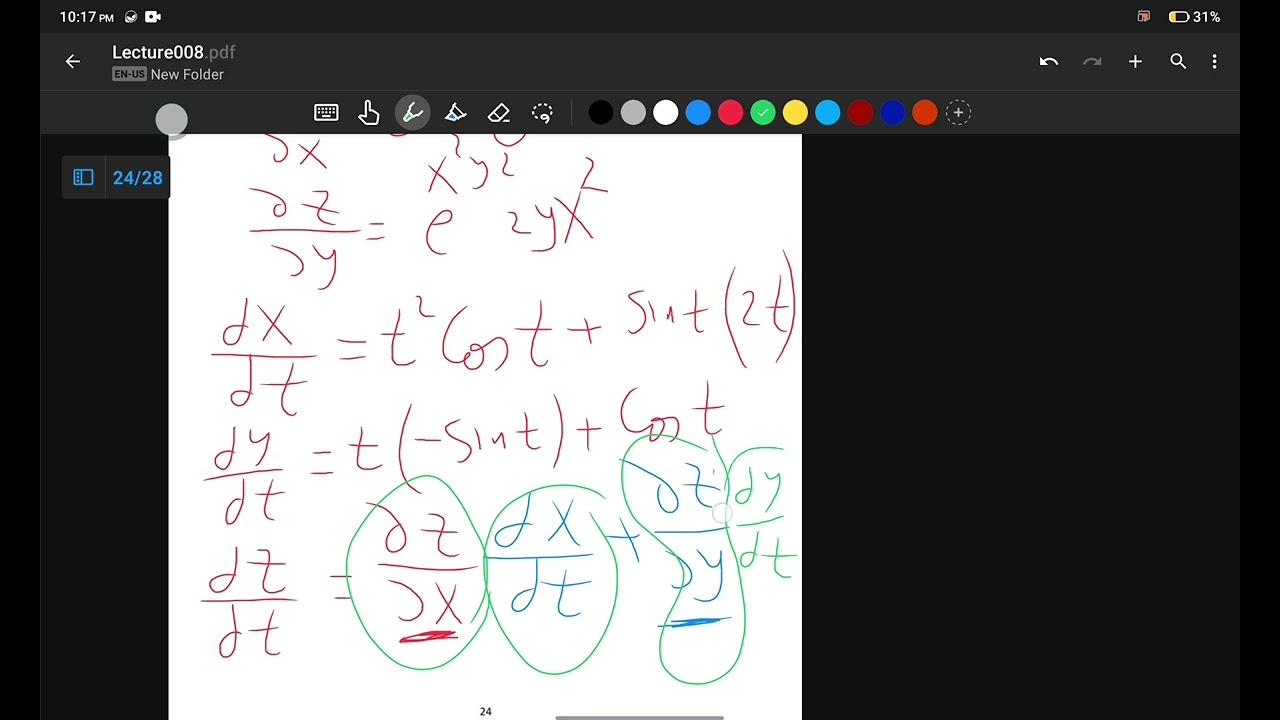 10:17 PM 31%
Lecture008.pdf
EN-US New Folder
24/28
∂x x²y²
∂z/∂y = e 2yx²
dx/dt = t² Cos t + sin t (2t)
dy/dt = t (-sin t) + Cos t
dz/dt = ∂z/∂x dx/dt + ∂z/∂y dy/dt
24